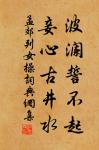 波澜誓不起
妾心古井水
孟郊列女操詞典網集